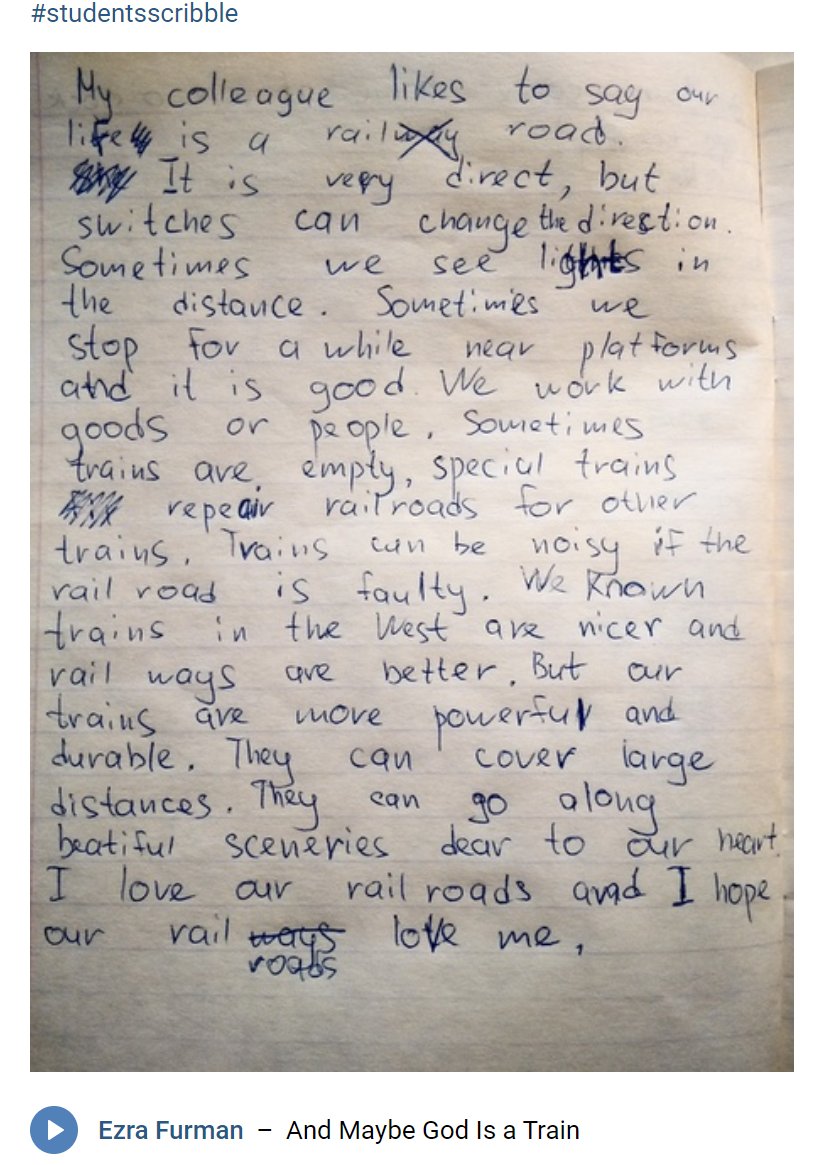 #studentsscribble
My colleague likes to say our
life is a rail road.
It is very direct, but
switches can change the direction.
Sometimes we see lights in
the distance. Sometimes we
stop for a while near platforms
and it is good. We work with
goods or people. Sometimes
trains are empty, special trains
repeair railroads for other
trains. Trains can be noisy if the
rail road is faulty. We known
trains in the West are nicer and
rail ways are better. But our
trains are more powerful and
durable. They can cover large
distances. They can go along
beatiful sceneries dear to our heart.
I love our rail roads and I hope
our rail ways love me,
roads
Ezra Furman – And Maybe God Is a Train